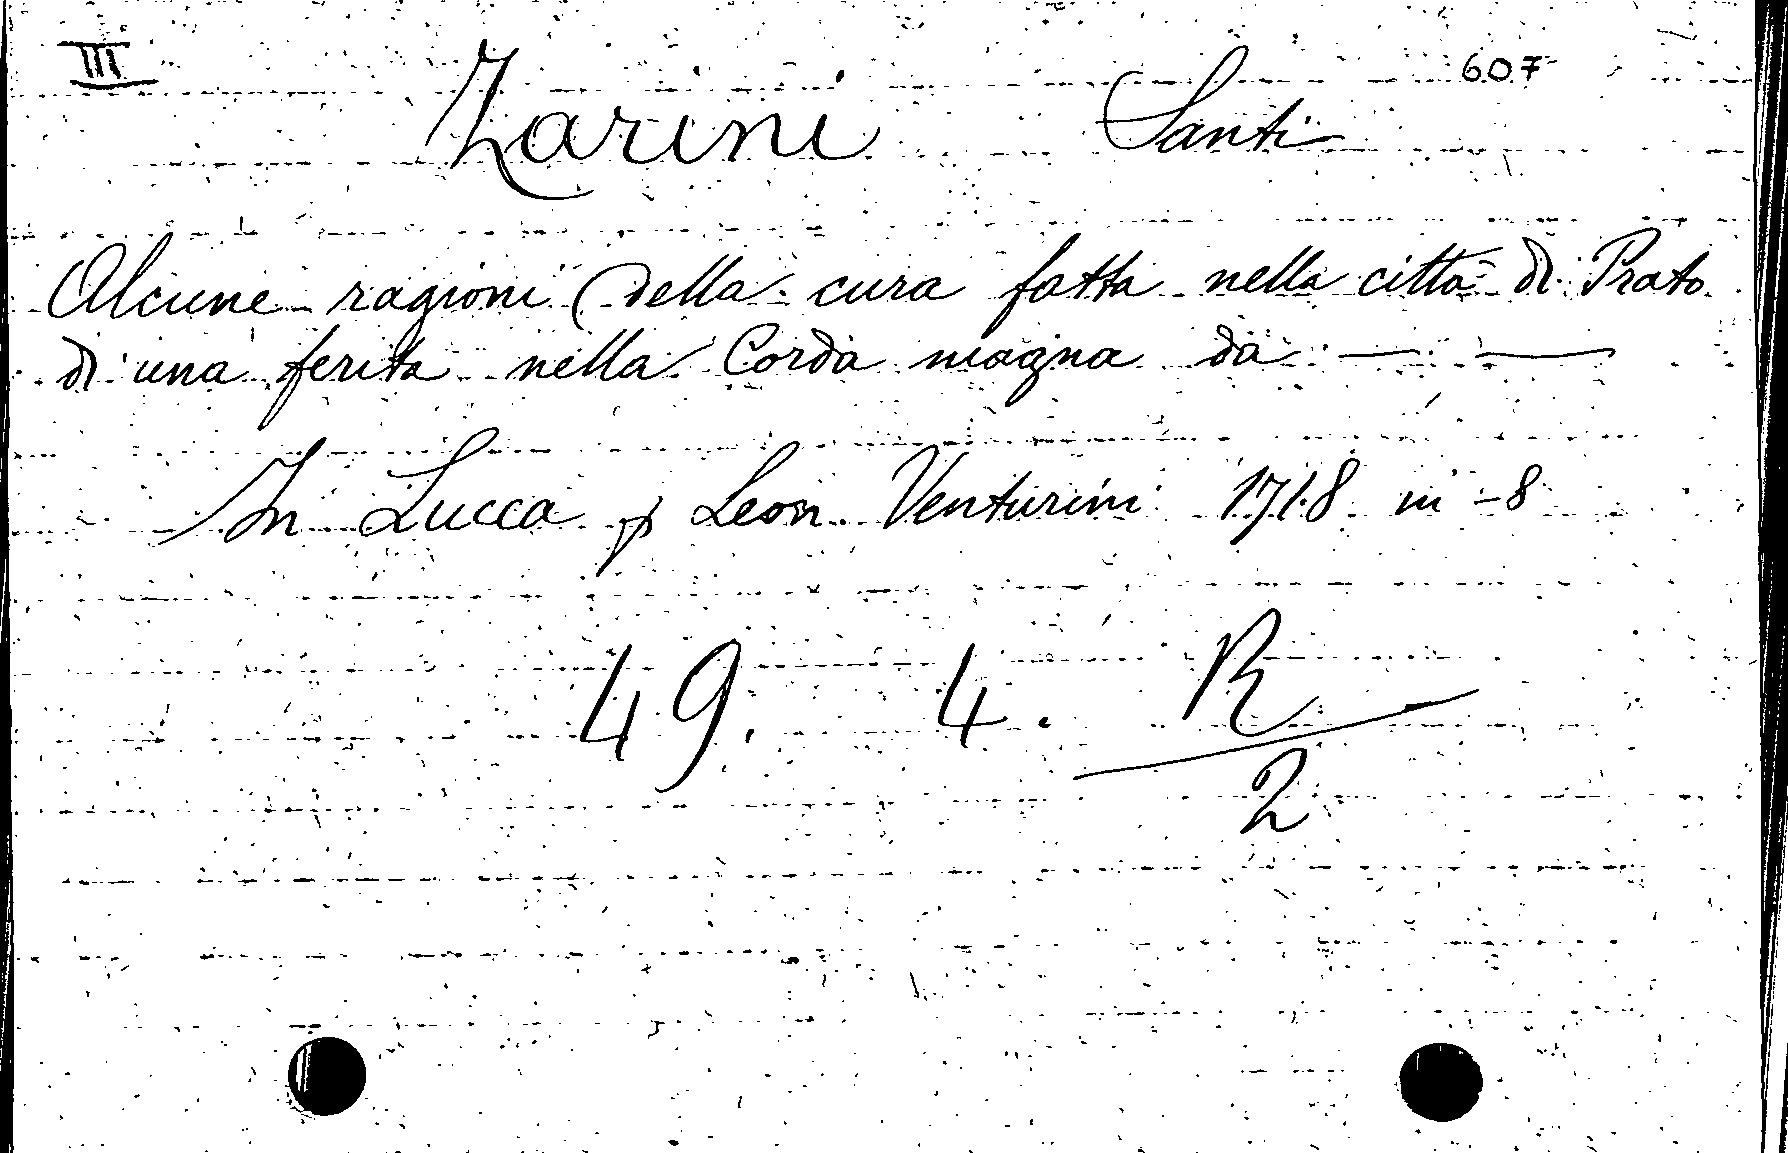 III 607
Zarini Santi
Alcune ragioni della cura fatta nella città di Prato
di una ferita nella Corda magna da — —
In Lucca p Leon. Venturini 1718 in -8
49. 4. R
2